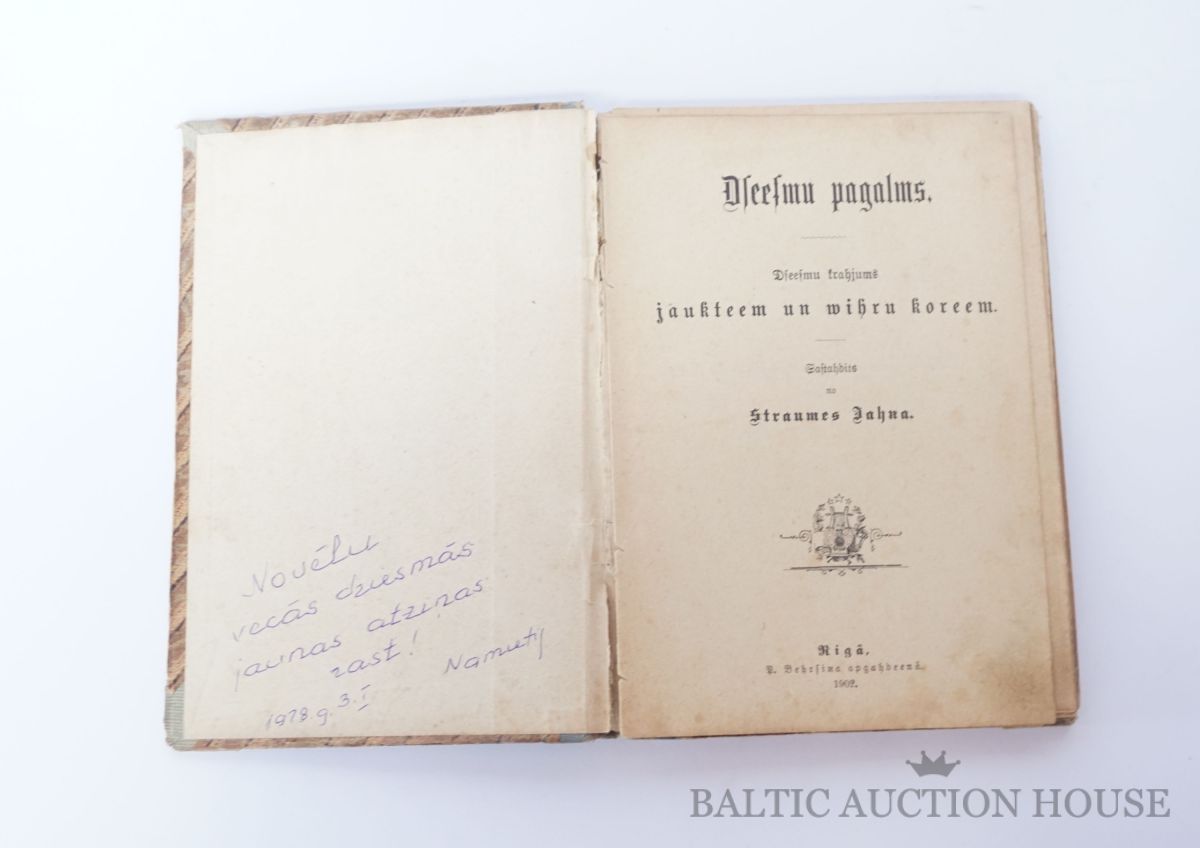 Novēlu
vecās dziesmās
jaunas atziņas
rast!
1978.g. 3.I
Dſeeſmu pagalms.
Dſeeſmu krahjums
jaukteem un wihru koreem.
Saſtahdits
no
Straumes Jahna.
Rigâ,
P. Behrſina apgahdeenâ
1902.
BALTIC AUCTION HOUSE